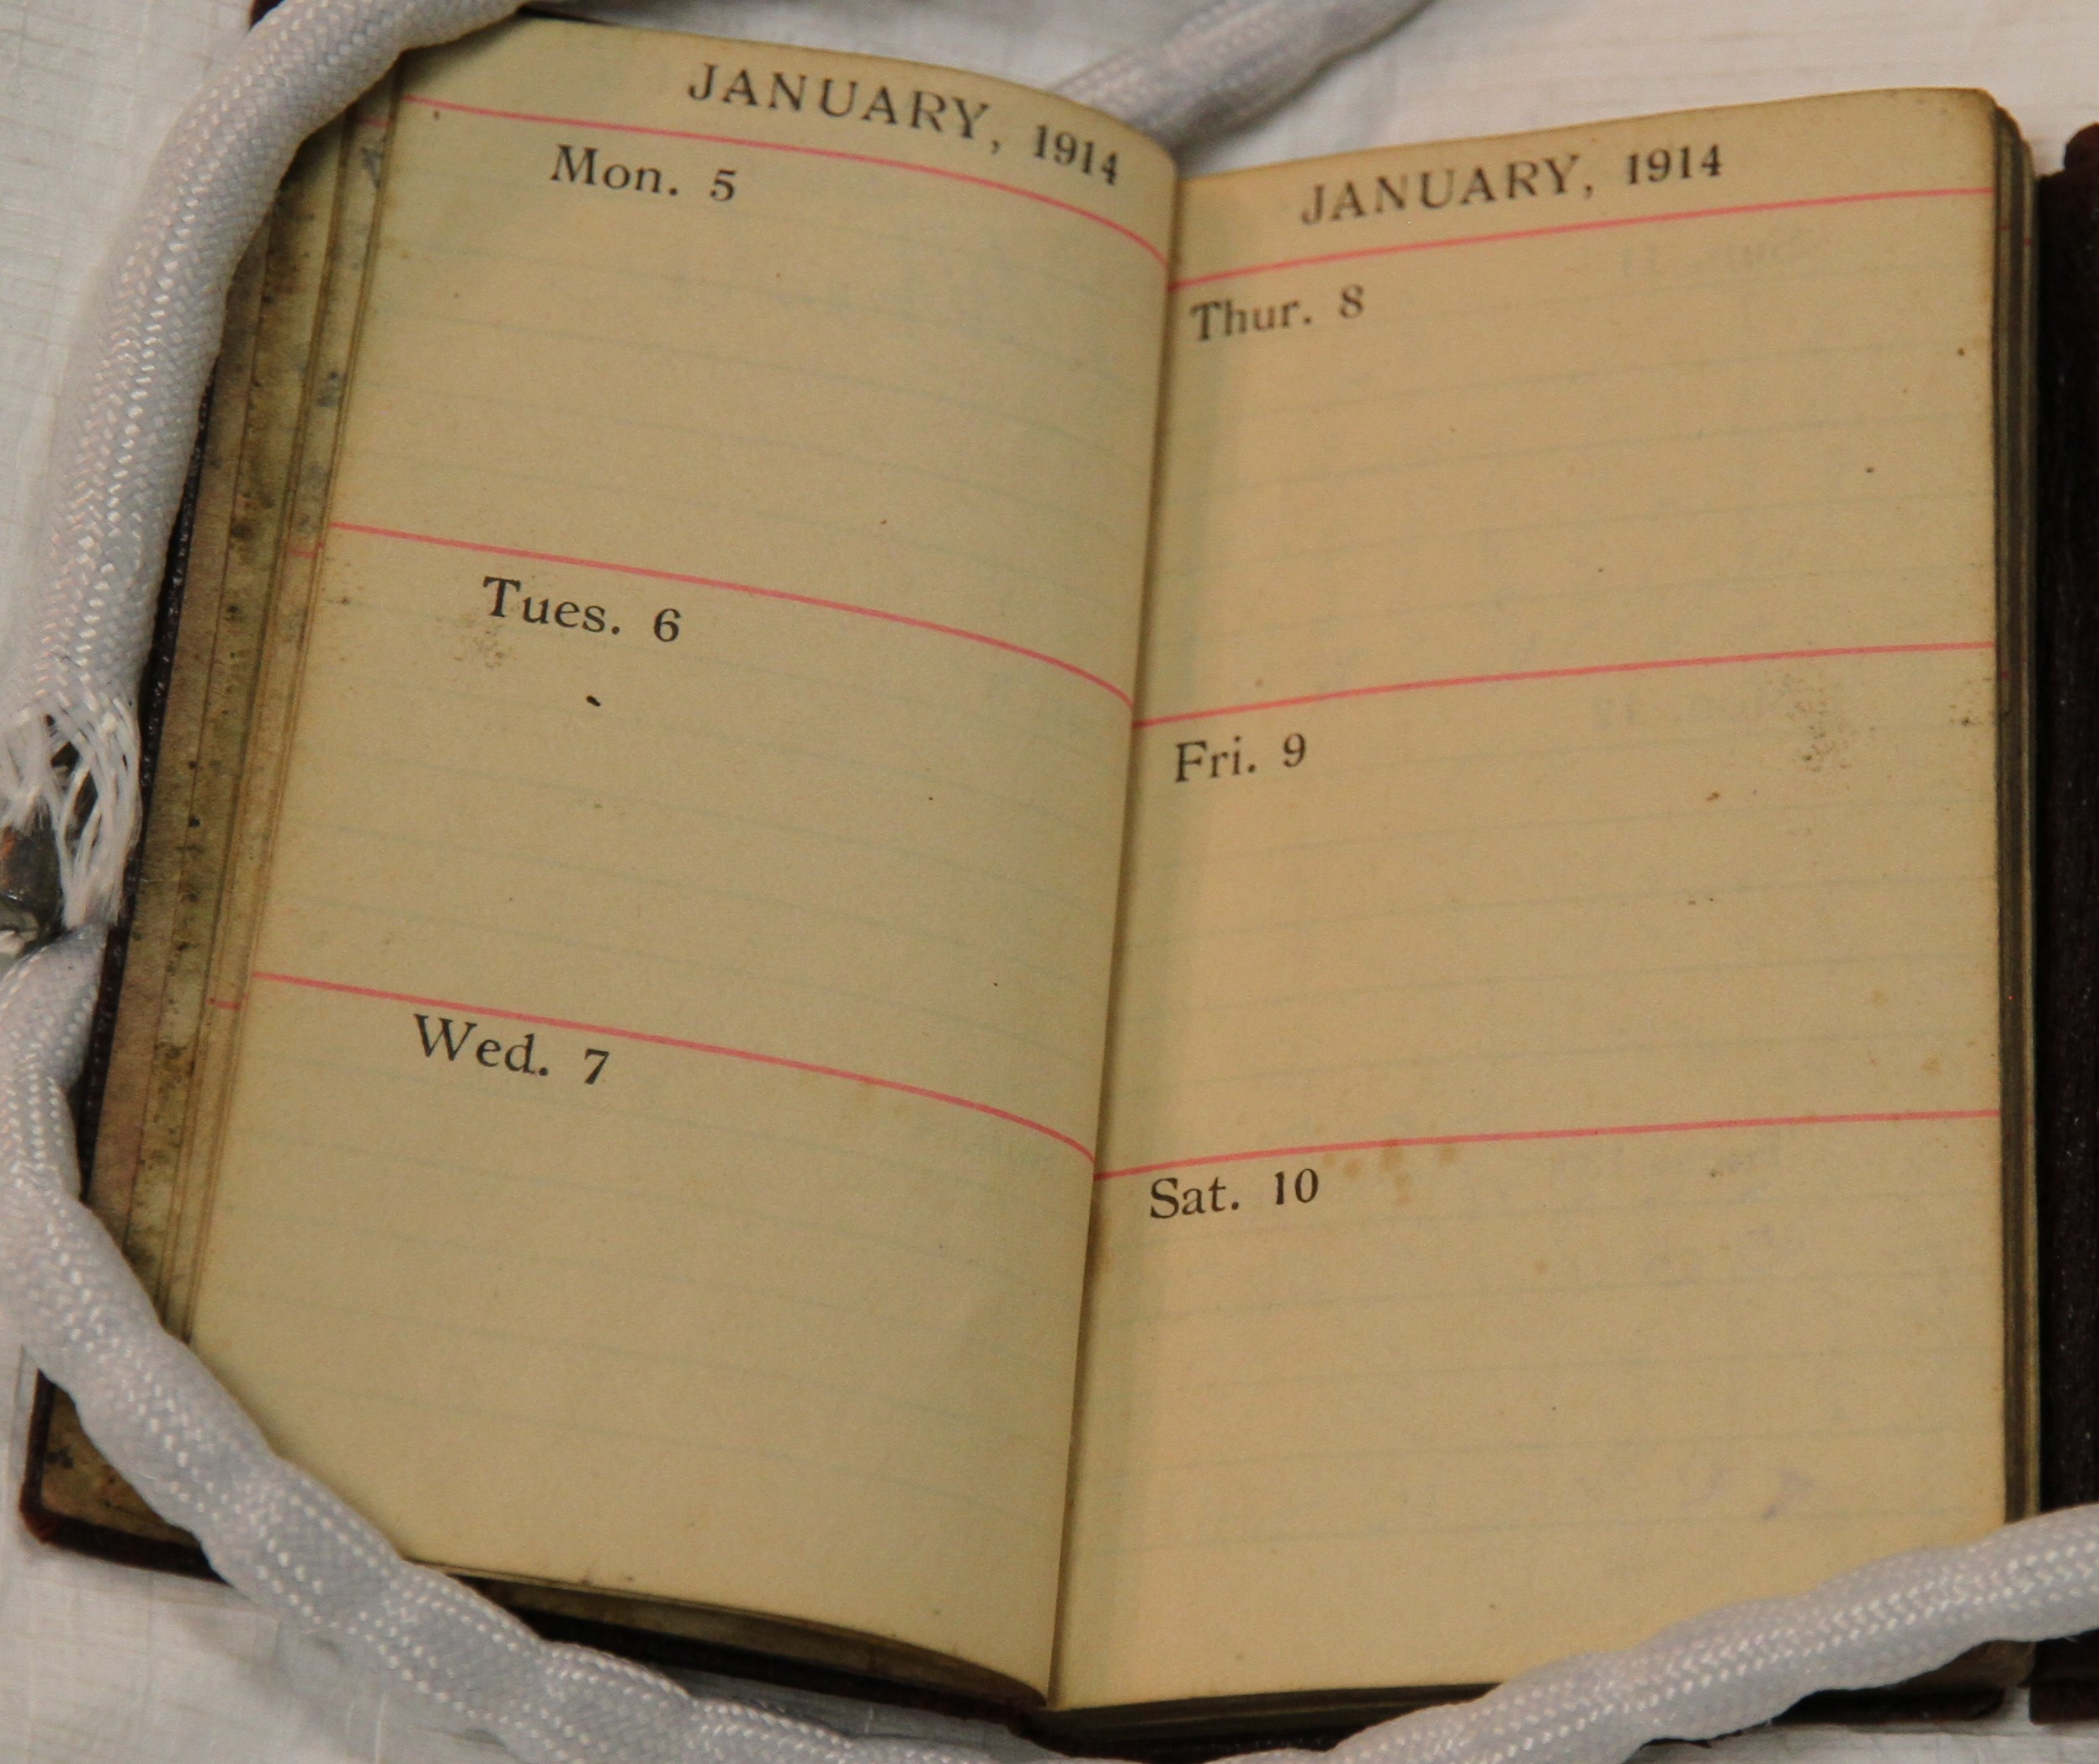 JANUARY, 1914
Mon. 5
Tues. 6
Wed. 7
JANUARY, 1914
Thur. 8
Fri. 9
Sat. 10